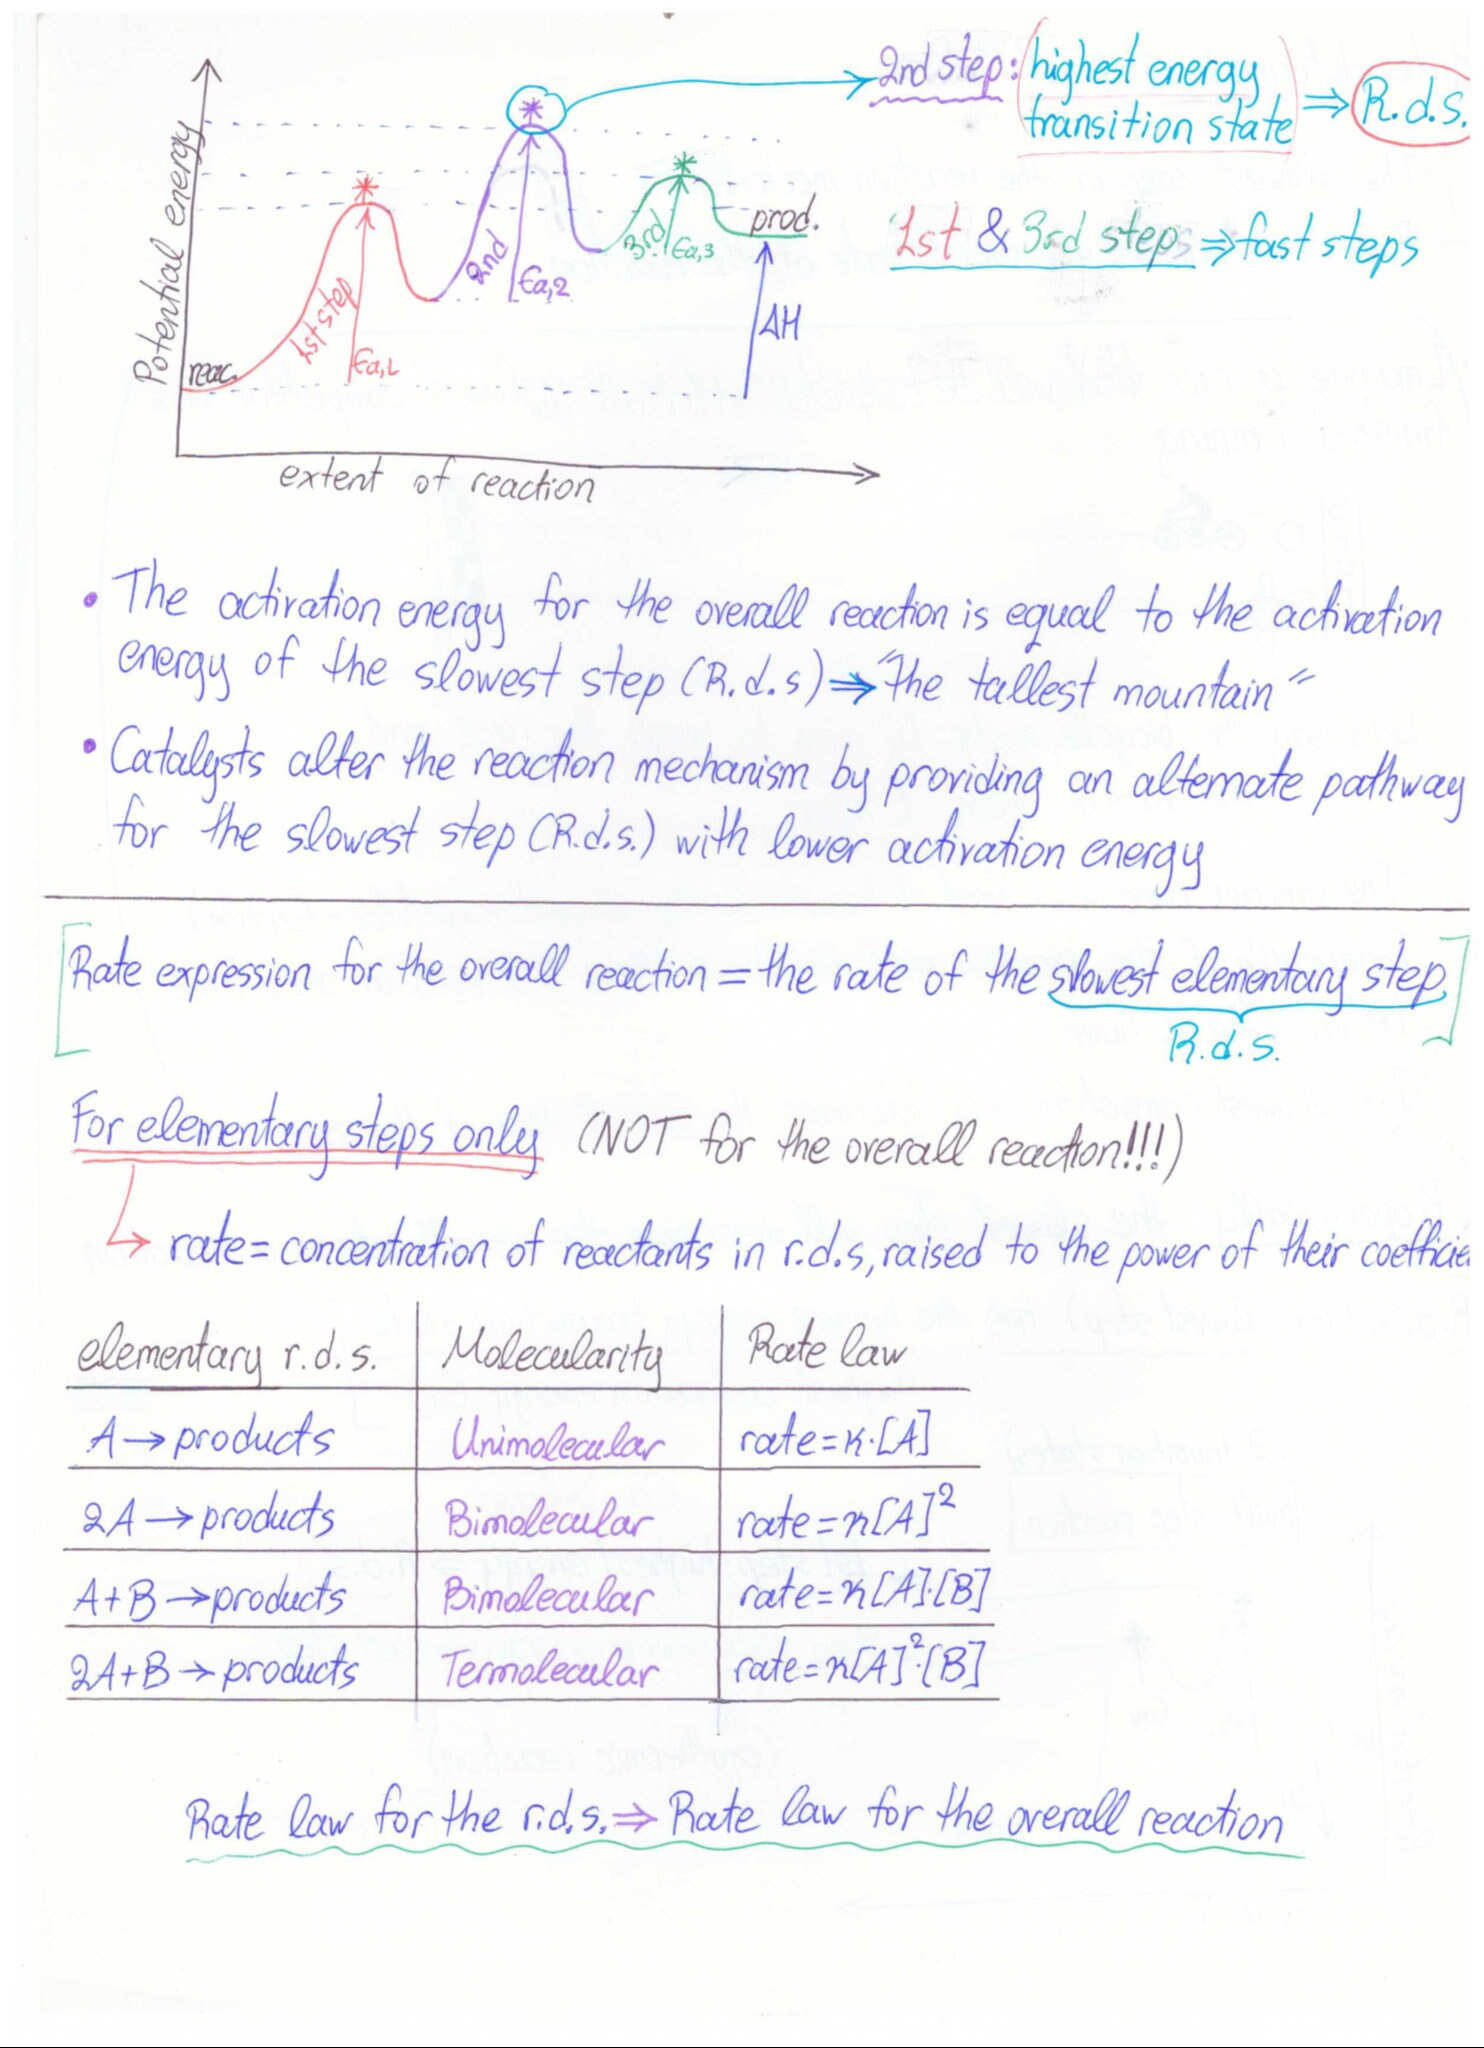 2nd step: highest energy
transition state ⇒ R.d.s.
1st & 3rd steps ⇒ fast steps
Potential energy
reac.
1st step
Ea,1
2nd
Ea,2
3rd
Ea,3
prod.
ΔH
extent of reaction
• The activation energy for the overall reaction is equal to the activation
energy of the slowest step (R.d.s) ⇒ "the tallest mountain"
• Catalysts alter the reaction mechanism by providing an alternate pathway
for the slowest step (R.d.s.) with lower activation energy
Rate expression for the overall reaction = the rate of the slowest elementary step
R.d.s.
For elementary steps only (NOT for the overall reaction!!!)
→ rate = concentration of reactants in r.d.s, raised to the power of their coefficie
elementary r.d.s. Molecularity Rate law
A → products Unimolecular rate = k·[A]
2A → products Bimolecular rate = k[A]²
A + B → products Bimolecular rate = k[A]·[B]
2A + B → products Termolecular rate = k[A]²·[B]
Rate law for the r.d.s. ⇒ Rate law for the overall reaction